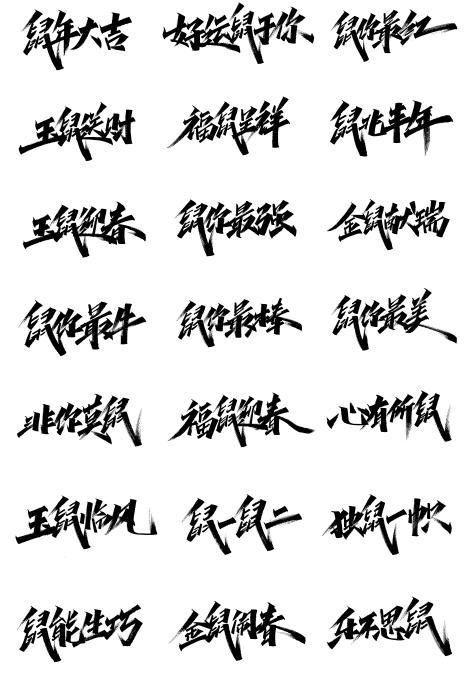 鼠年大吉 好运鼠于你 鼠你最红
玉鼠送财 福鼠呈祥 鼠兆丰年
玉鼠迎春 鼠你最强 金鼠献瑞
鼠你最牛 鼠你最棒 鼠你最美
非你莫鼠 福鼠迎春 心有所鼠
玉鼠临风 鼠一鼠二 独鼠一帜
鼠能生巧 金鼠闹春 任不思鼠